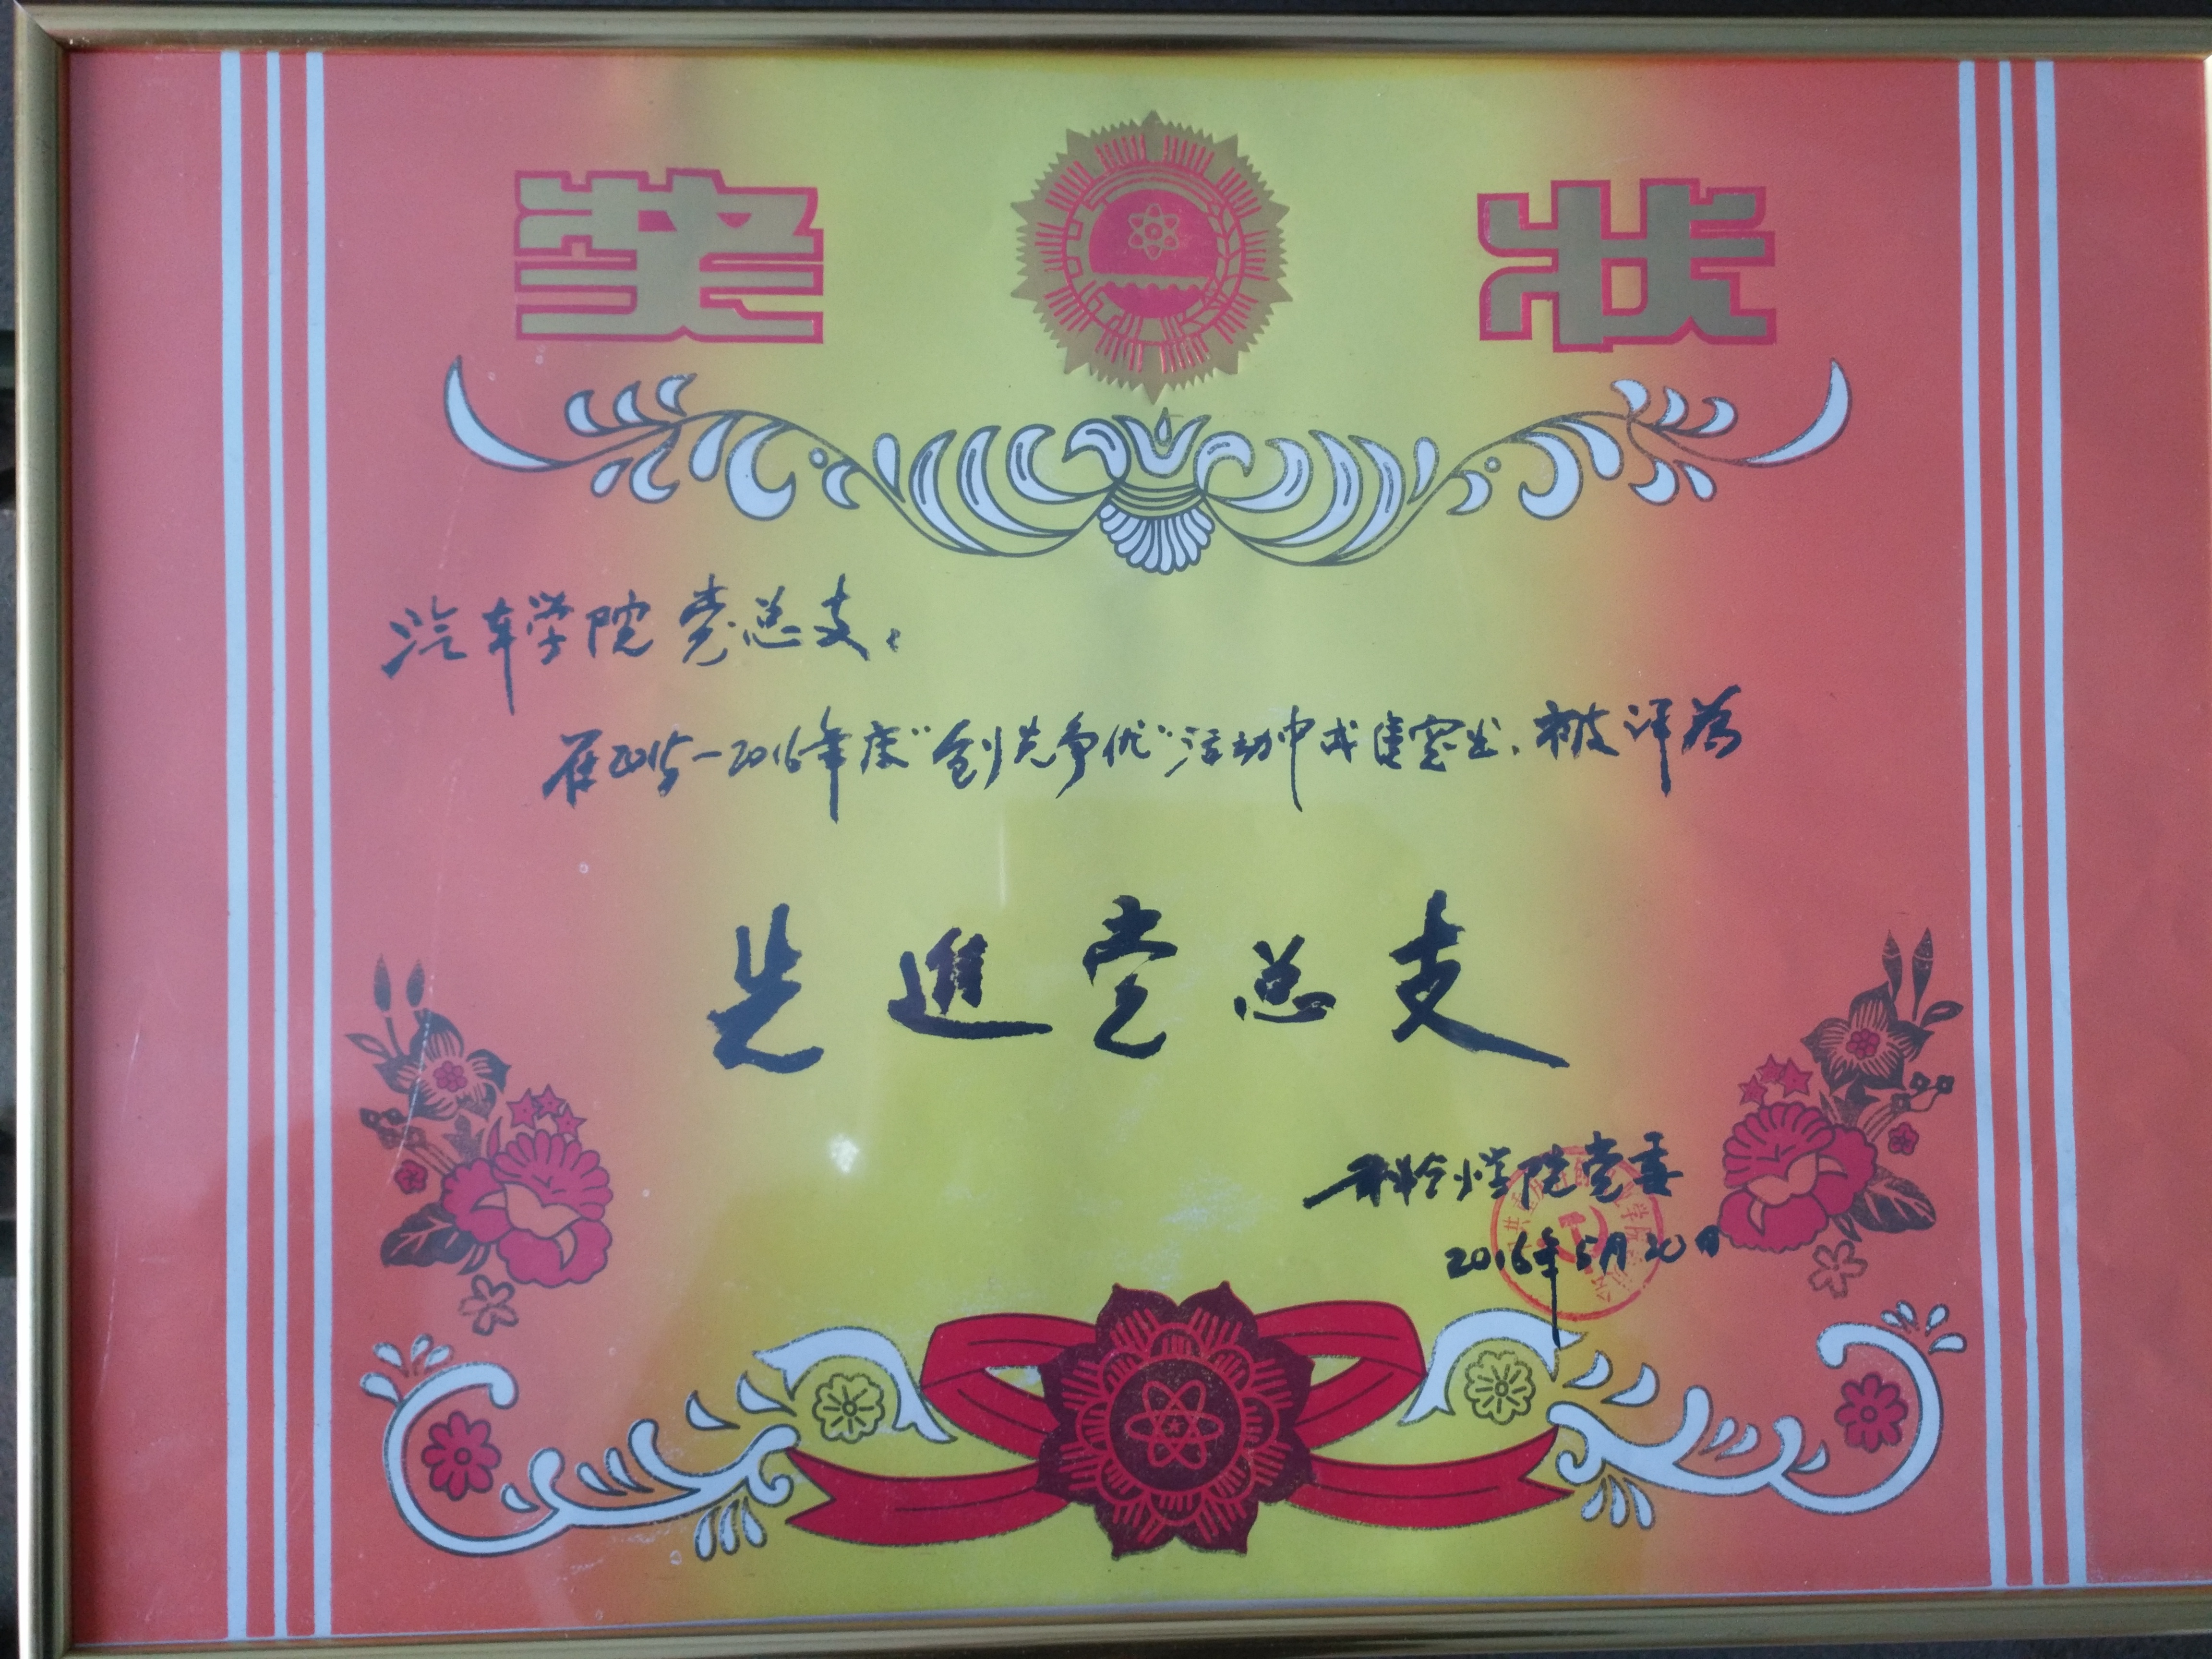 奖 状
汽车学院党总支:
在2015-2016年度"创先争优"活动中成绩突出,被评为
先進党总支
科创学院党委
2016年5月20日